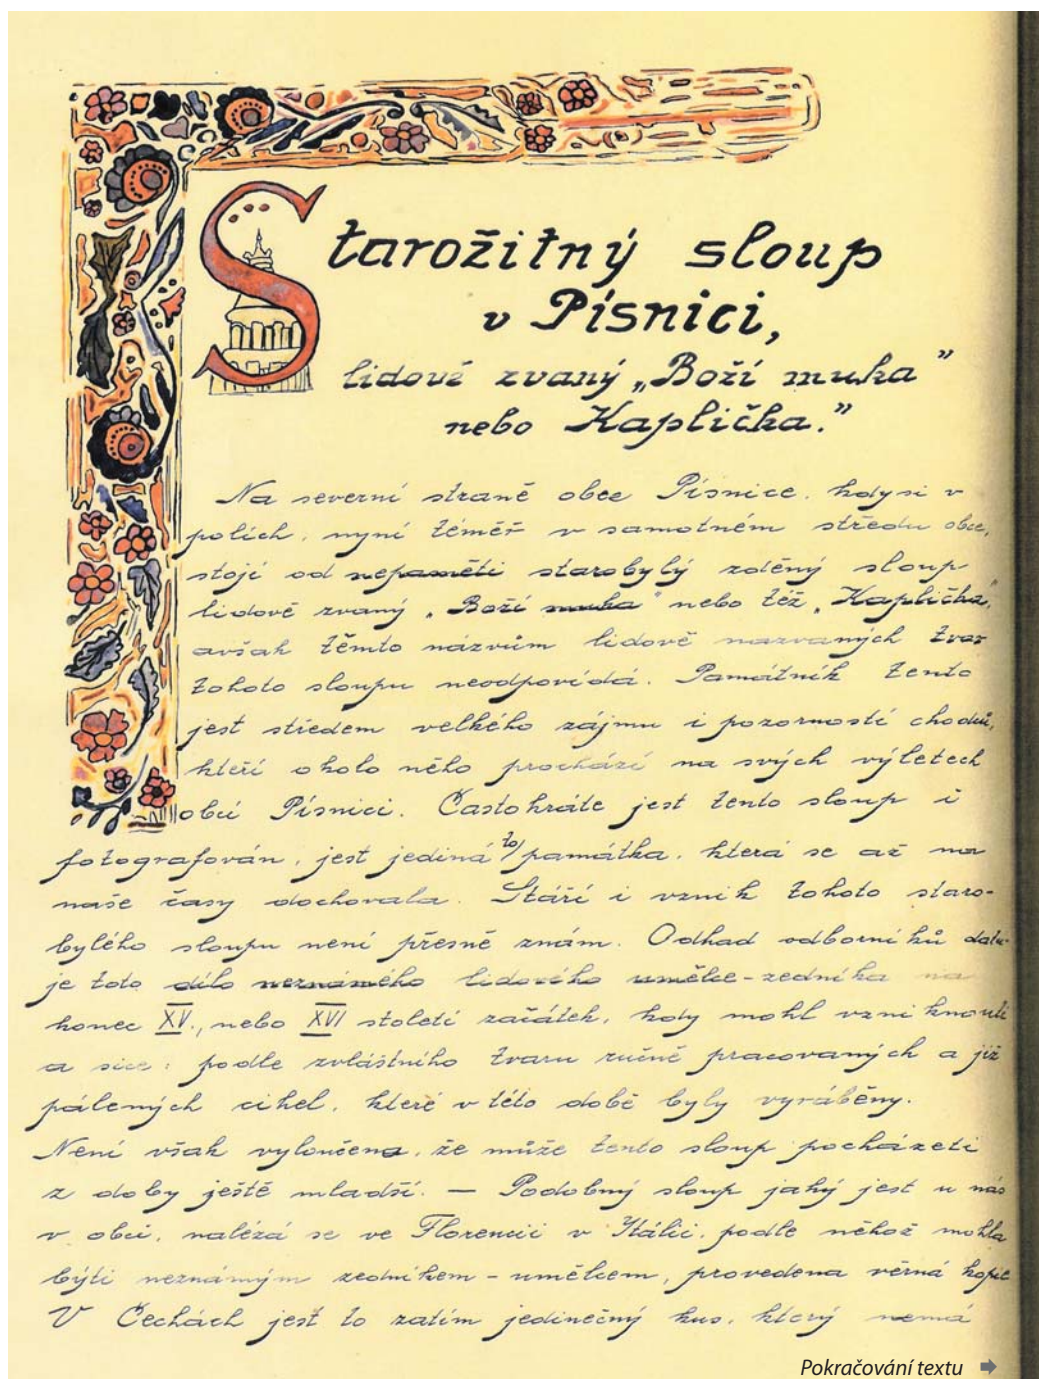 Starožitný sloup
v Písnici,
lidově zvaný „Boží muka”
nebo Kaplička.”
Na severní straně obce Písnice, kdysi v
polích, nyní téměř v samotném středu obce,
stojí od nepaměti starobylý zděný sloup
lidově zvaný „Boží muka" nebo též „Kaplička",
avšak těmto názvům lidově nazvaných tvar
tohoto sloupu neodpovídá. Památník tento
jest středem velkého zájmu i pozornosti chodců,
kteří okolo něho prochází na svých výletech
obcí Písnici. Častokráte jest tento sloup i
fotografován, jest jediná to památka, která se až na
naše časy dochovala. Stáří i vznik tohoto staro-
bylého sloupu není přesně znám. Odhad odborníků datu-
je toto dílo neznámého lidového umělce-zedníka na
konec XV., nebo XVI století začátek, kdy mohl vzniknouti
a sice: podle zvláštního tvaru ručně pracovaných a již
pálených cihel, které v této době byly vyráběny.
Není však vyloučeno, že může tento sloup pocházeti
z doby ještě mladší. — Podobný sloup jaký jest u nás
v obci, nalézá se ve Florencii v Itálii, podle něhož mohla
býti neznámým zedníkem-umělcem, provedena věrná kopie
V Čechách jest to zatím jedinečný kus, který nemá
Pokračování textu ➡